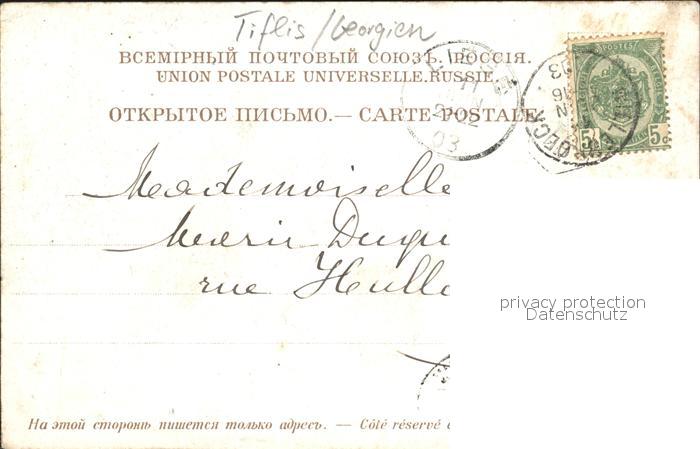 Tiflis / Georgien
ВСЕМІРНЫЙ ПОЧТОВЫЙ СОЮЗЪ. РОССІЯ.
UNION POSTALE UNIVERSELLE. RUSSIE.
ОТКРЫТОЕ ПИСЬМО.— CARTE POSTALE
POSTES
5 5c
03
Mademoiselle
Marie Duqu
rue Hulle
privacy protection
Datenschutz
На этой сторонѣ пишется только адресъ. — Côté réservé